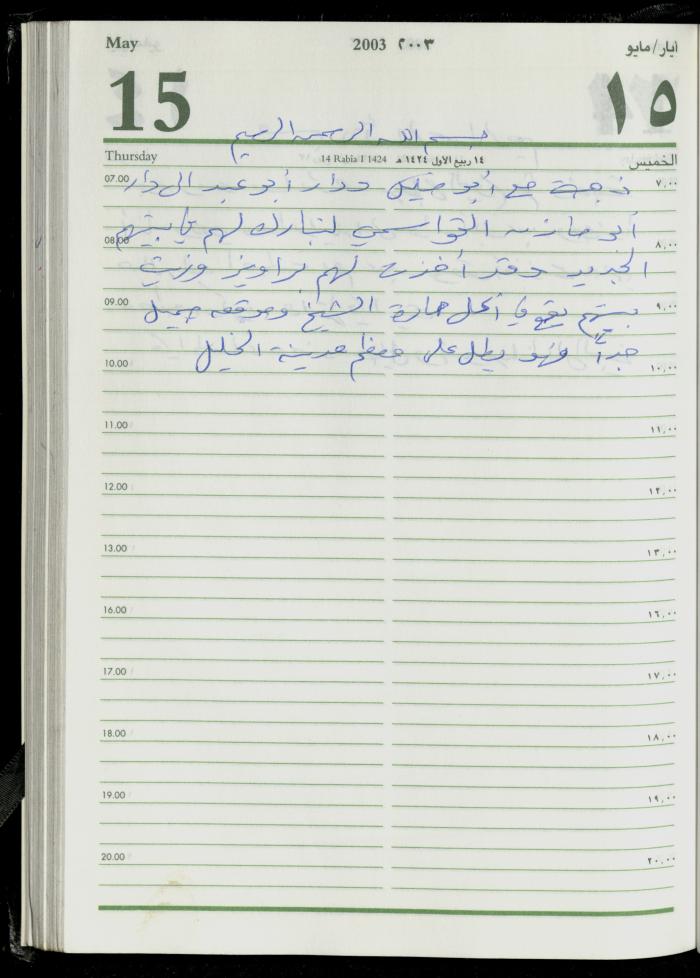 May 2003 ٢٠٠٣ أيار/مايو
15 ١٥
بسم الله الرحمن الرحيم
Thursday 14 Rabia I 1424 ١٤ ربيع الأول ١٤٢٤ هـ الخميس
07.00 ذهبت مع أبو ودار أبو عبد الى دار ٧,٠٠
أبو مازن القواسمي لنبارك لهم في بيتهم
08.00 ٨,٠٠
الجديد وقد أخذت لهم براويز وزيت
09.00 ٩,٠٠
بيتهم يقع في أكحل حارة الشيخ وموقعه جميل
جداً فهو يطل على معظم مدينة الخليل
10.00 ١٠,٠٠
11.00 ١١,٠٠
12.00 ١٢,٠٠
13.00 ١٣,٠٠
16.00 ١٦,٠٠
17.00 ١٧,٠٠
18.00 ١٨,٠٠
19.00 ١٩,٠٠
20.00 ٢٠,٠٠